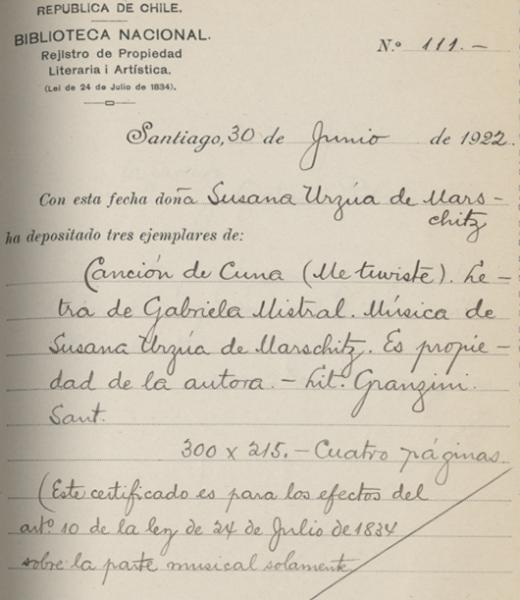 REPUBLICA DE CHILE.
BIBLIOTECA NACIONAL.
Rejistro de Propiedad
Literaria i Artística.
(Lei de 24 de Julio de 1834).
N.º 111.-
Santiago, 30 de Junio de 1922.
Con esta fecha doña Susana Urzúa de Mars-
chitz
ha depositado tres ejemplares de:
Canción de Cuna (Me tuwiste). Le-
tra de Gabriela Mistral. Música de
Susana Urzúa de Marschitz. Es propie-
dad de la autora. - Lit. Granzini.
Sant.
300 x 215. - Cuatro páginas.
(Este certificado es para los efectos del
artº 10 de la ley de 24 de Julio de 1834
sobre la parte musical solamente